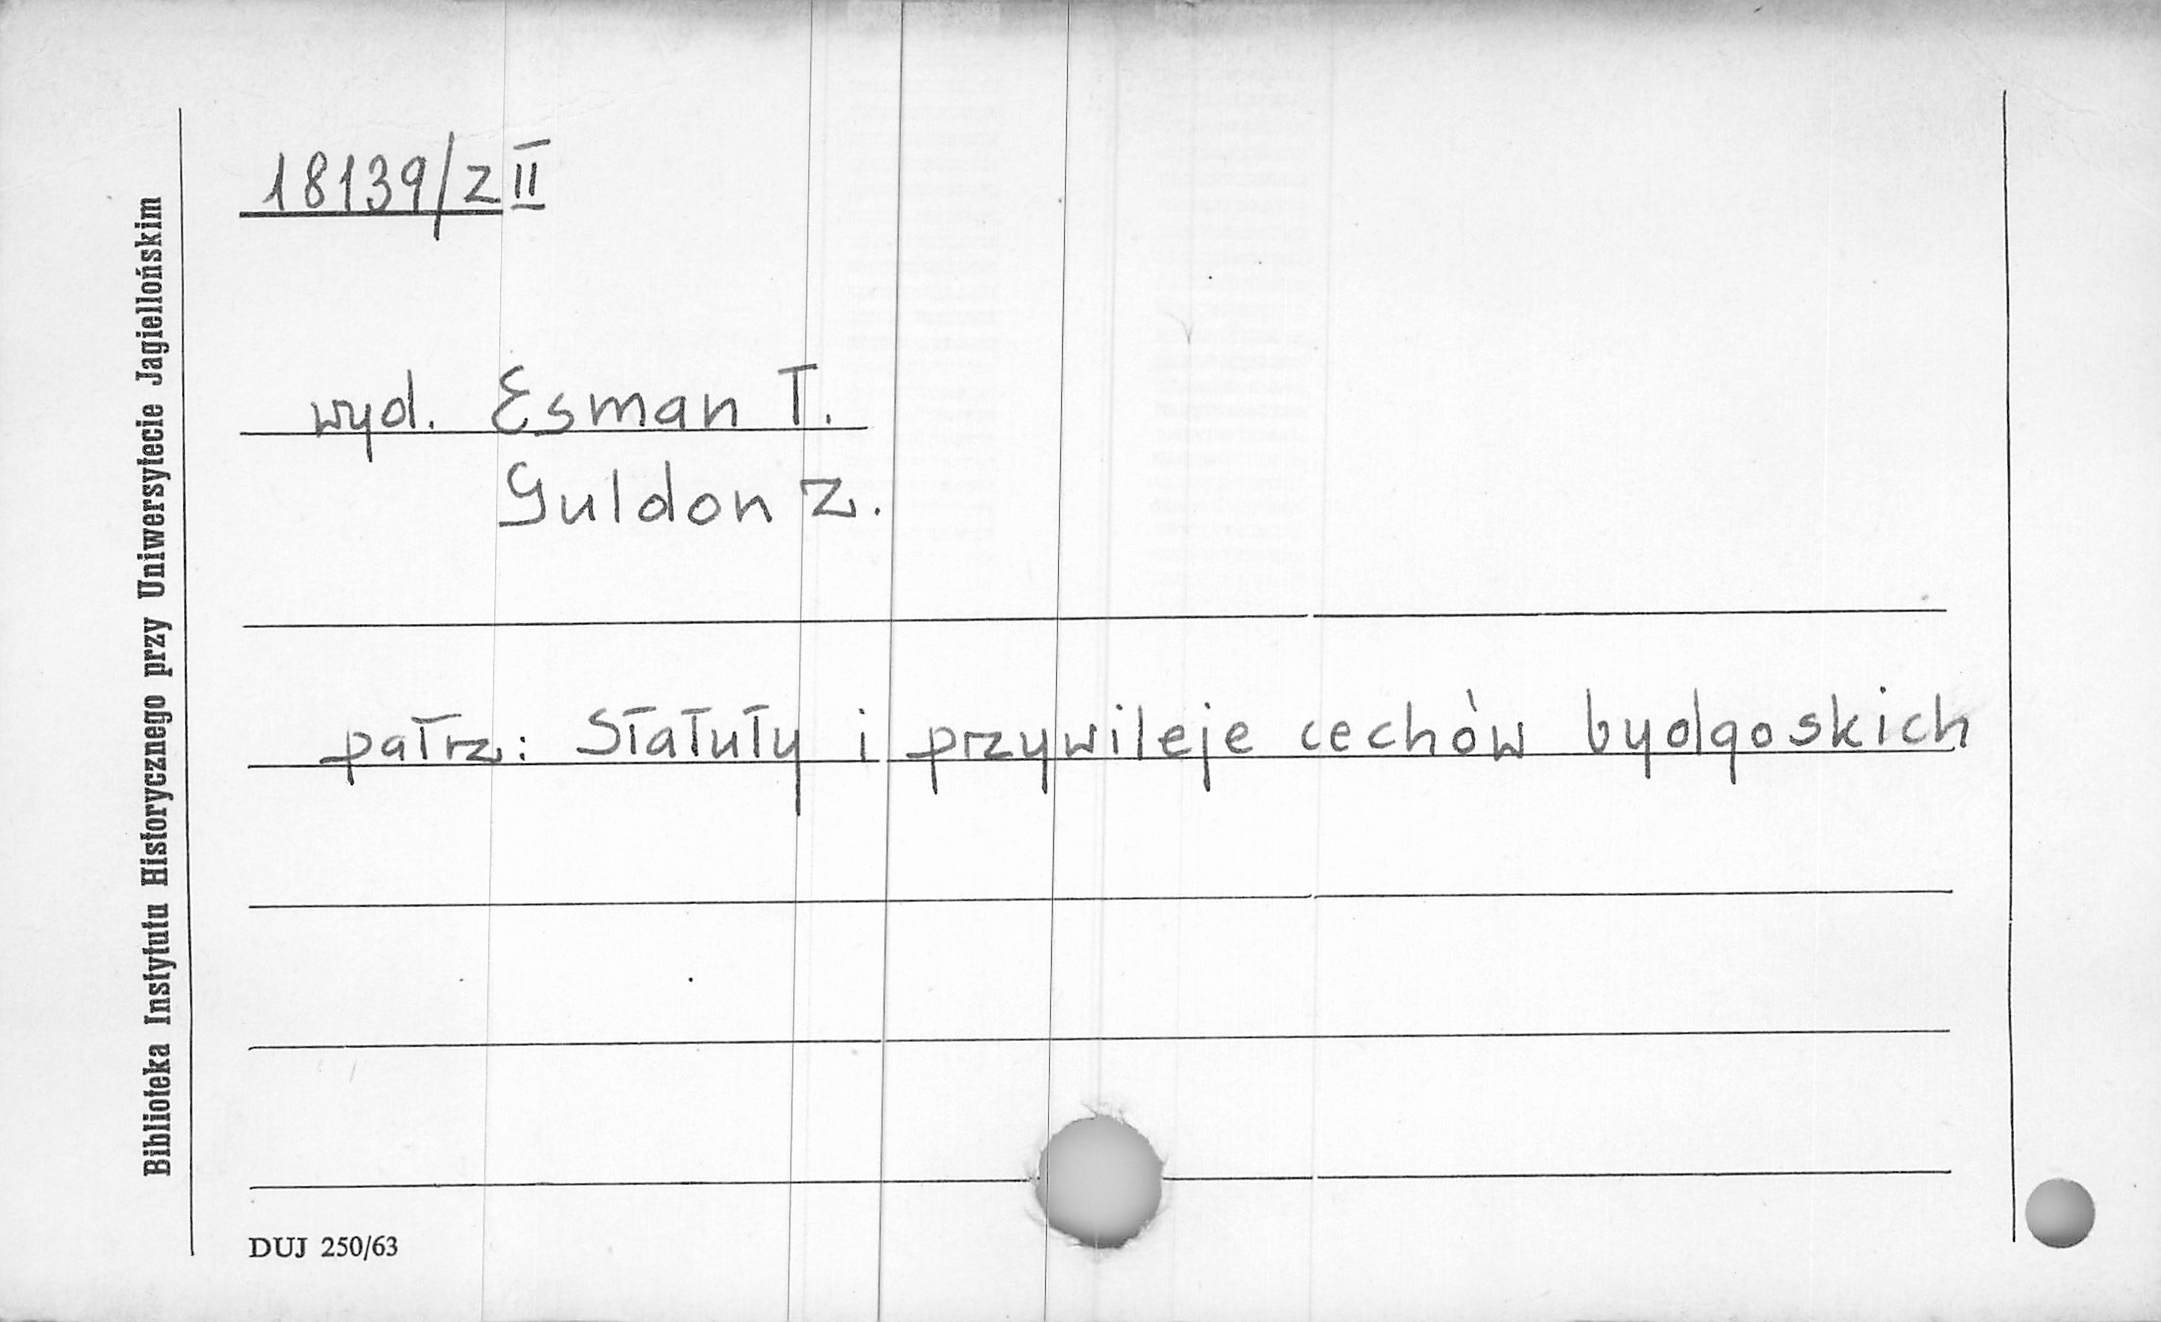 18139/Z II
wyd. Esman T.
Guldon Z.
patrz: Statuty i przywileje cechów bydgoskich
Biblioteka Instytutu Historycznego przy Uniwersytecie Jagiellońskim
DUJ 250/63